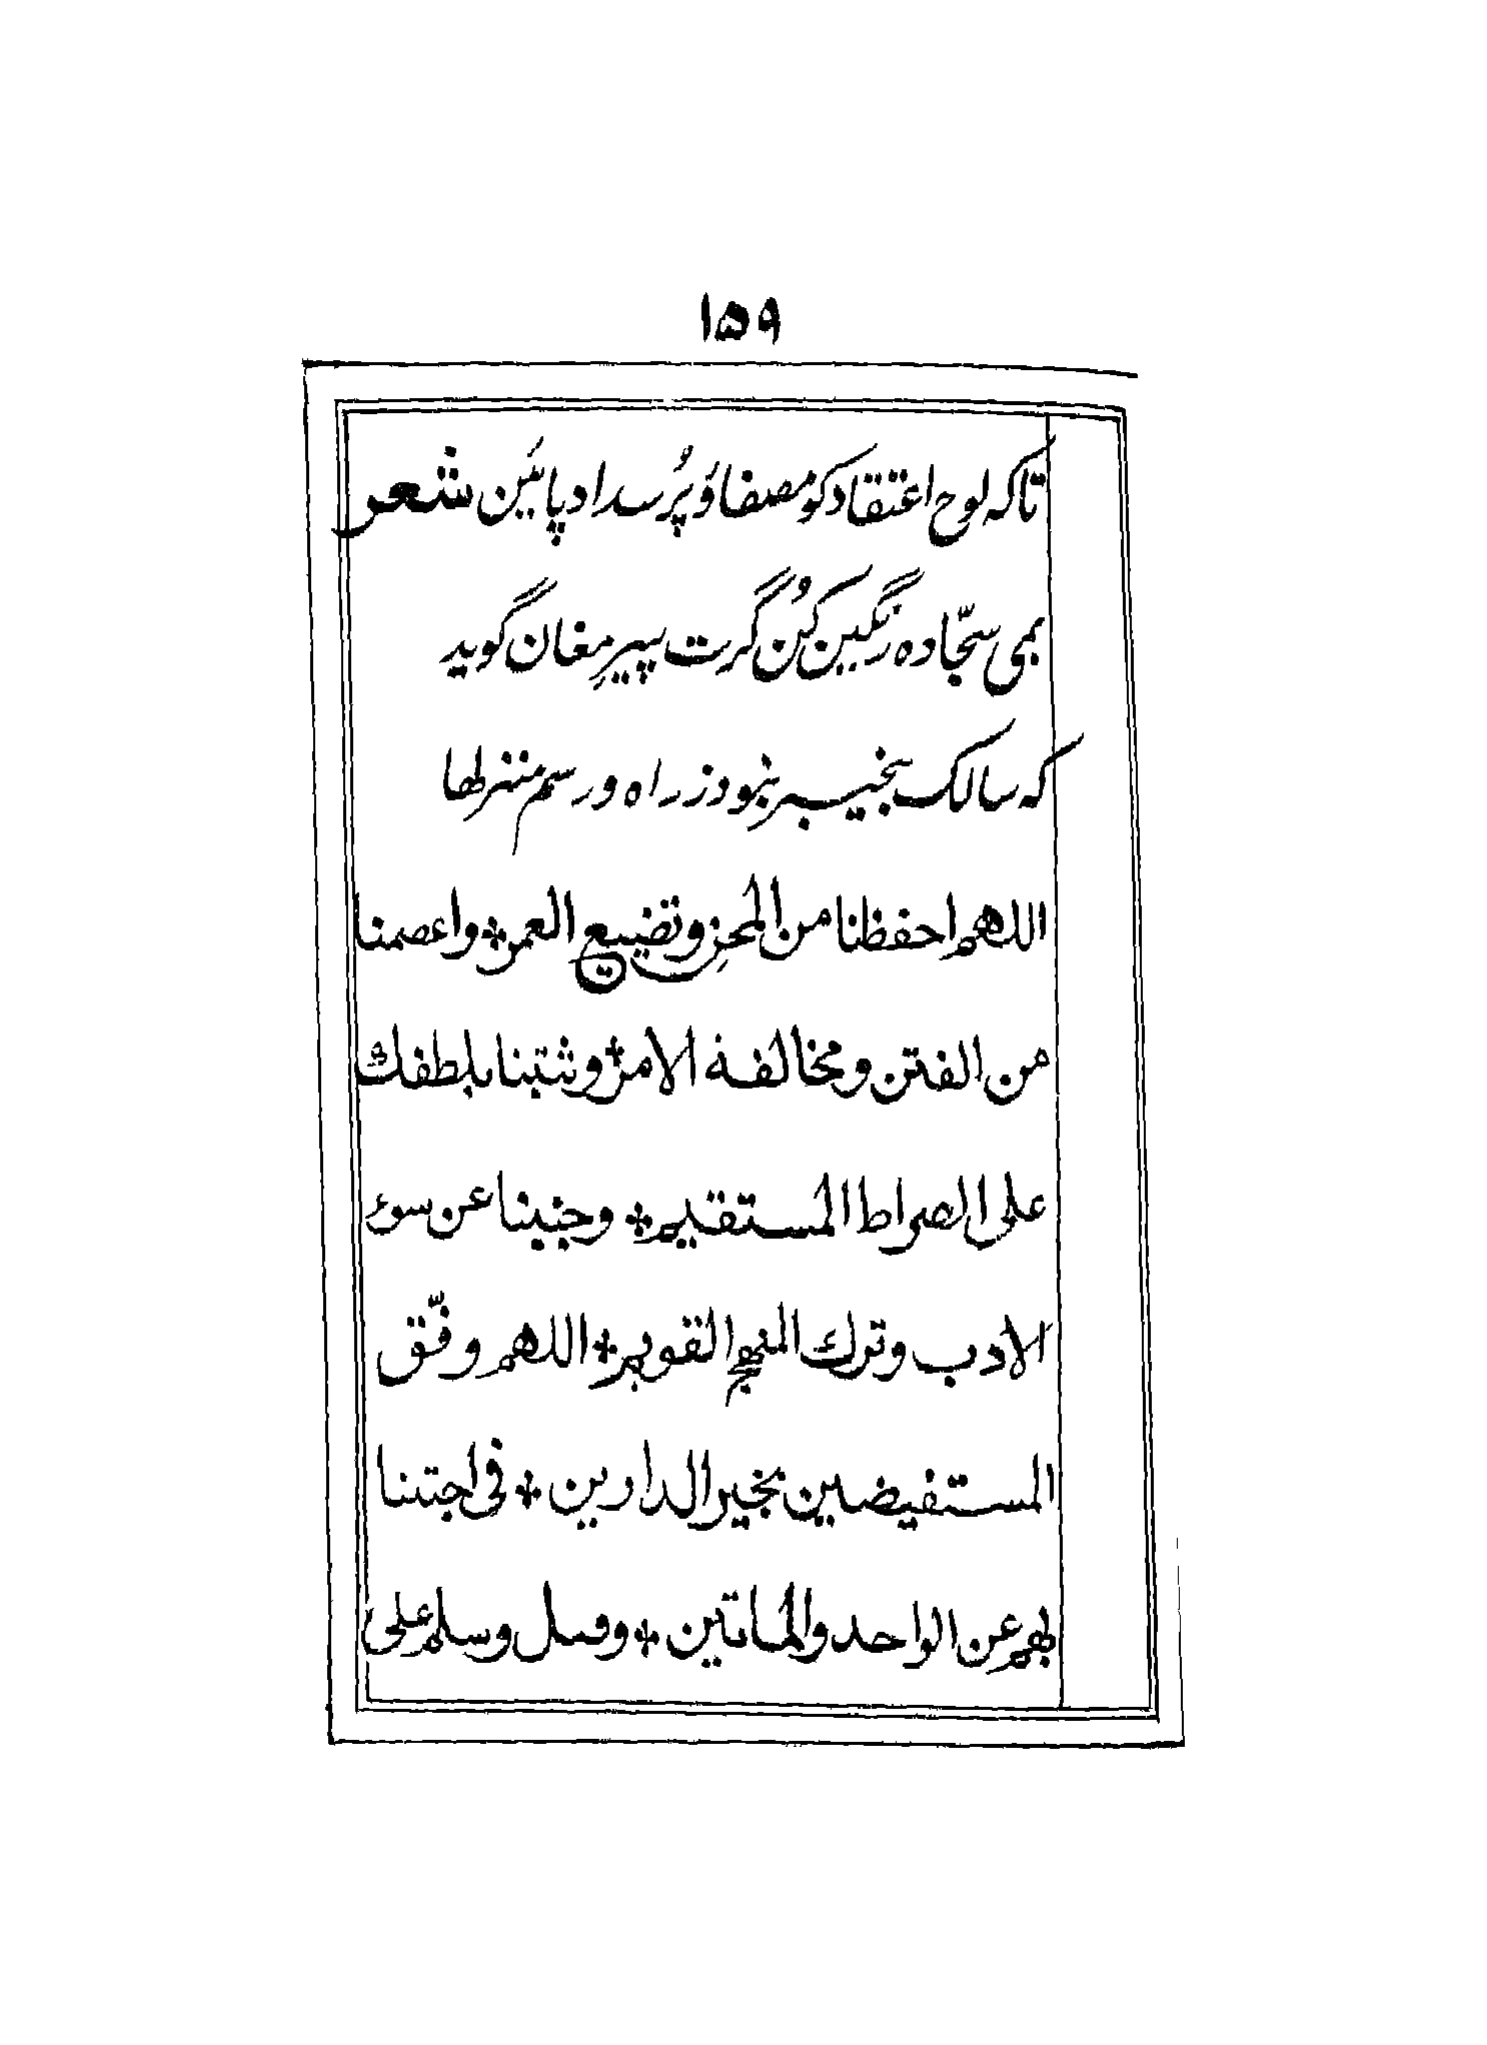 ۱۵۹
تاکہ لوح اعتقاد کو مصفا ؤ پُر سداد پائیَن شعر
بمی سجّاده رنگین کُن گرت پیرِ مغان گوید
که سالک بیخبر نبود ز راه و رسم منزلها
اللهم احفظنا من المحن وتضييع العمر ÷ واعصمنا
من الفتن ومخالفة الامر ÷ وثبتنا بلطفك
على الصراط المستقيم ÷ وجنبنا عن سوء
الادب وترك المنهج القويم ÷ اللهم وفّق
المستفيضين بخير الدارين ÷ في اجتنا
بهم عن الواحد والماتين ÷ وصل وسلم على